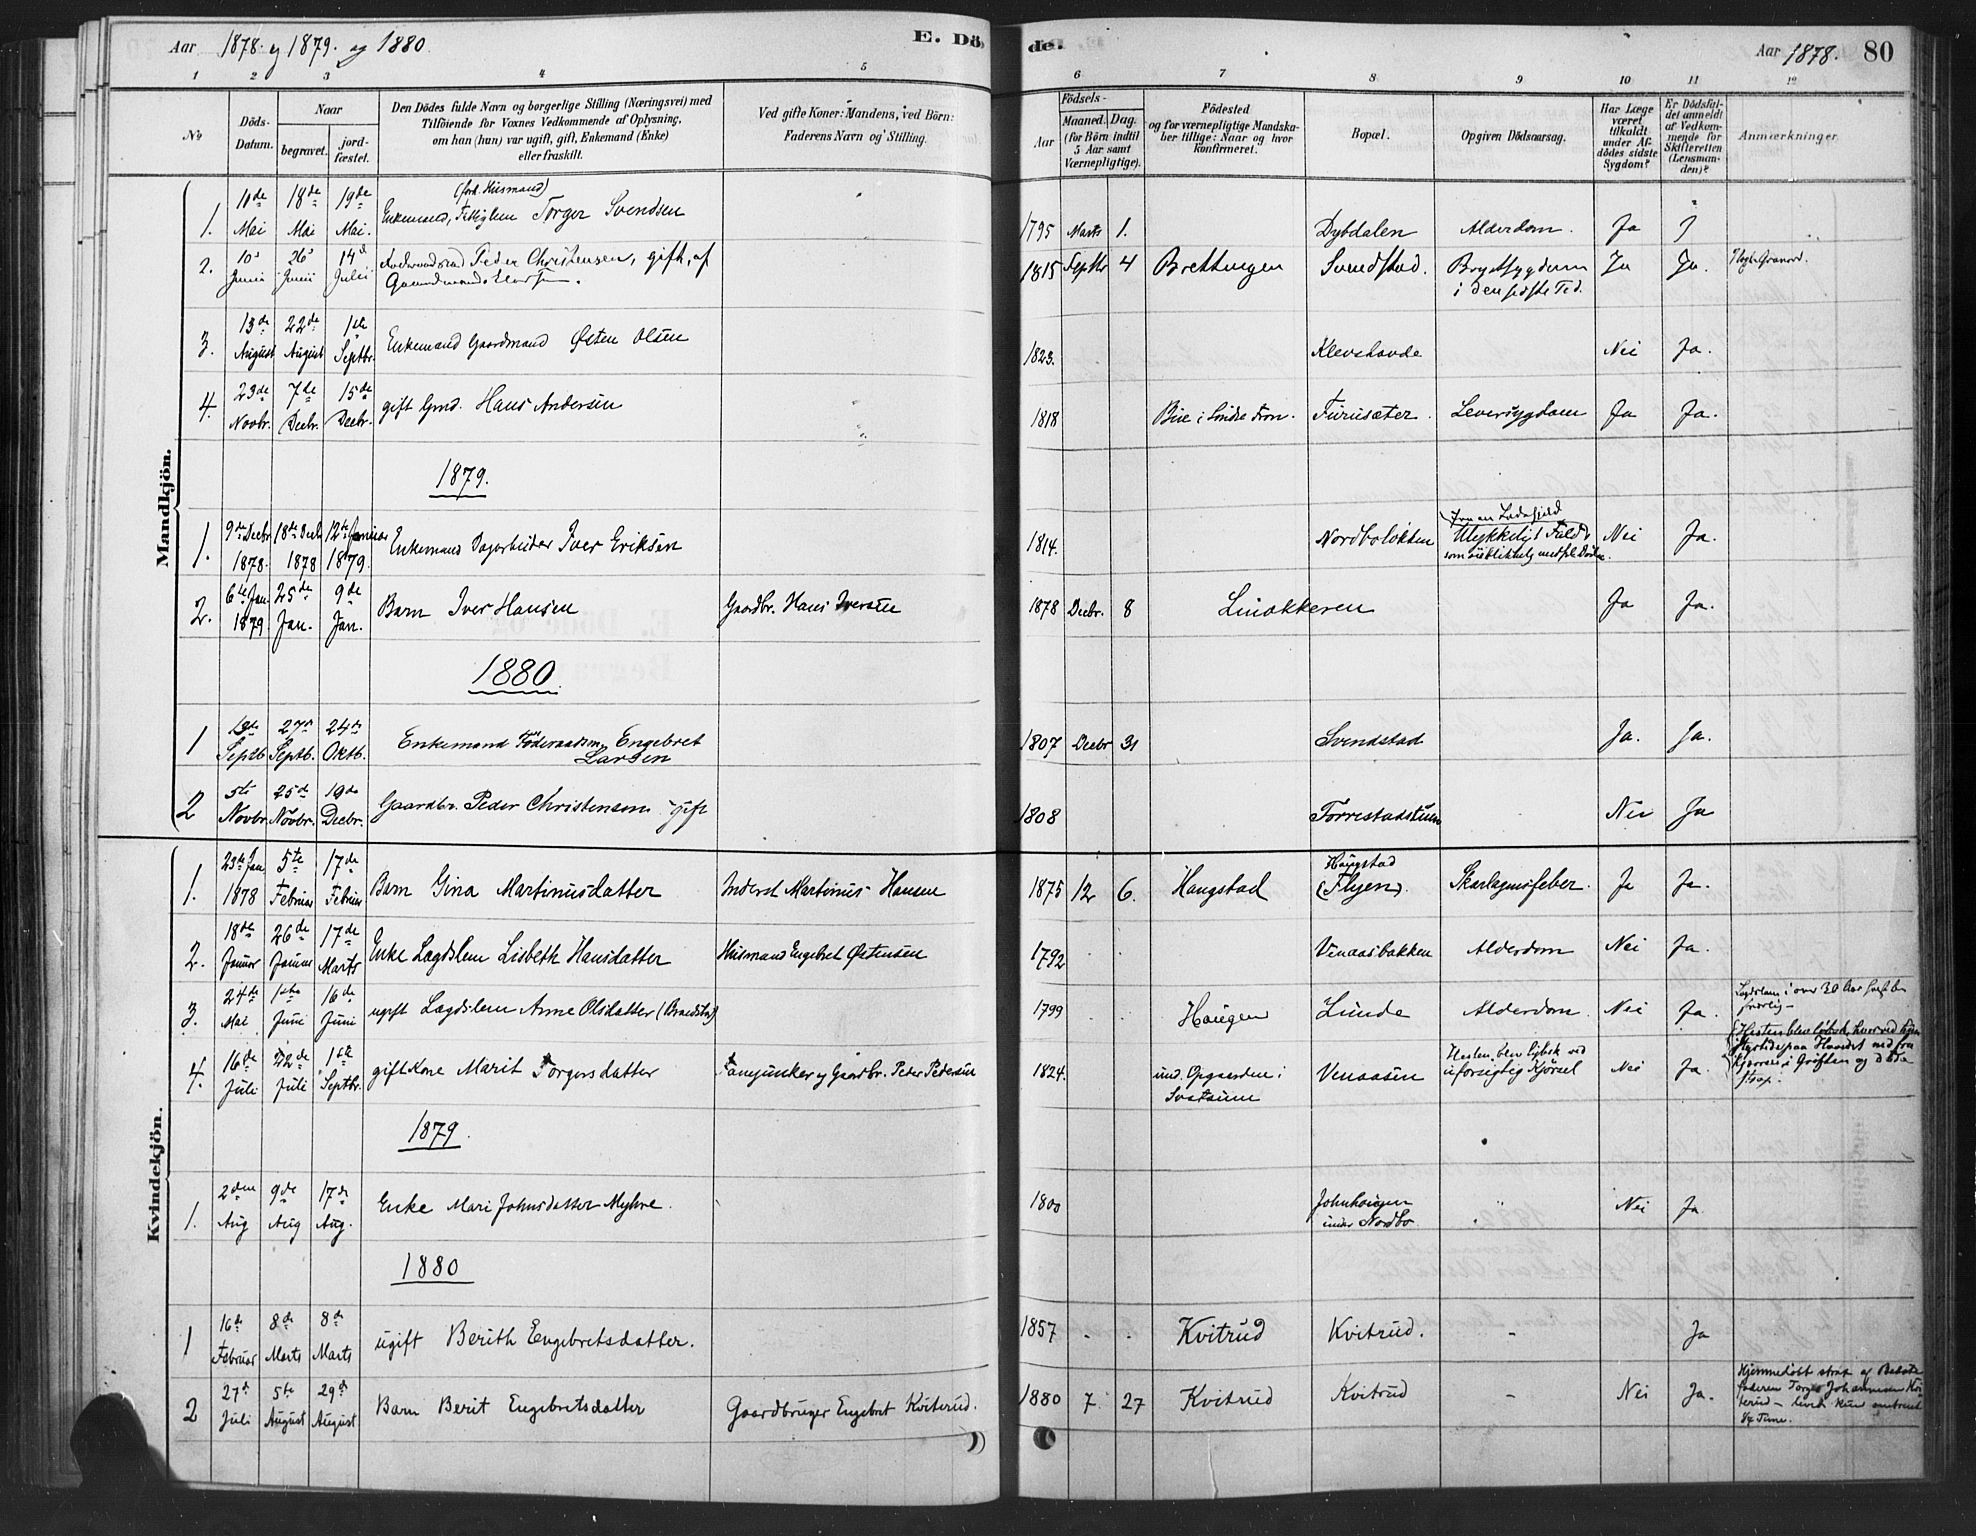 Aar 1878. og 1879. og 1880.
E. Dö
de.
Aar 1878.
80
1 2 3 4 5 6 7 8 9 10 11 12
No
Döds-Datum.
Naar
begravet.
jord-fæstet.
Den Dödes fulde Navn og borgerlige Stilling (Næringsvei) med
Tilföiende for Voxnes Vedkommende af Oplysning,
om han (hun) var ugift, gift, Enkemand (Enke)
eller fraskilt.
Ved gifte Koner: Mandens, ved Börn:
Faderens Navn og Stilling.
Födsels-
Aar
Maaned. Dag.
(for Börn indtil
5 Aar samt
Værnepligtige).
Födested
og for værnepligtige Mandska-
ber tillige: Naar og hvor
konfirmeret.
Bopæl.
Opgiven Dödsaarsag.
Har Læge
været
tilkaldt
under Af-
dödes sidste
Sygdom?
Er Dödsfal-
det anmeldt
af Vedkom-
mende for
Skifteretten
(Lensman-
den)?
Anmærkninger.
Mandkjön.
(ford. Husmand)
1. 10de Mai 18de Mai 19de Mai. Enkemand, Torger Svendsen 1795 Marts 1. Dybdalen Alderdom. Ja J
2. 10de Junii 26de Junii 14de Julii Peder Christensen, gift, af 1815 Septbr 4 Brettingen Svendstad. Brystsygdom Ja Ja.
i den sidste Tid.
3. 13de August 22de August 1ste Septbr. Enkemand Gaardmand Østen Olsen 1823. Klevshovde Nei Ja.
4. 23de Novbr. 7de Decbr. 15de Decbr. gift Gmd. Hans Andersen 1818 Bue i Søndre Fron. Furusæter. Leversygdom Ja Ja.
1879.
1. 9de Decbr 1878. 18de Decb 1878 12te Januar 1879. Enkemand Dagarbeider Iver Eriksen 1814. Nordboløkken Ulykkeligt Fald Nei Ja.
som øieblikkelig medførte Døden.
2. 6te Jan. 1879 25de Jan. 9de Jan. Barn Iver Hansen Gaardbr. Hans Iversen 1878 Decbr. 8 Linåkkeren Ja Ja.
1880.
1 13de Septb. 27de Septb. 24de Oktb. Enkemand Føderaadsm. Engebret
Larsen 1807 Decbr 31 Svendstad Ja. Ja.
2 5te Novbr. 25de Novbr. 19de Decbr. Gaardbr. Peder Christensen gift 1808 Forrestadstuen Nei Ja
Kvindekjön.
1. 23de Jan 1878 5te Februar 17de Februar Barn Gina Martinusdatter Inderst Martinus Hansen 1875 12 6. Haugstad Haugstad
(Flyen). Skarlagensfeber. Ja Ja.
2. 18de Januar 26de Januar 17de Marts Enke Lægdslem Lisbeth Hansdatter Husmand Engebret Østensen 1792 Venaasbakken Alderdom Nei Ja.
3. 24de Mai 1ste Juni 16de Juni ugift Lægdslem Anne Olsdatter 1799 Haugen Lunde Alderdom. Nei Ja.
Lægdslem i over 30 Aar
4. 16de Juli 22de Juli 1ste Septbr. gift Kone Marit Torgersdatter Fanejunker og Gaardbr. Peder Pedersen 1824. und. Opgaarden i
Svatsum Venaasen Hesten blev løbsk ved
uforsigtig Kjørsel Nei Ja.
Hesten blev løbsk, hvorved hun
styrtede paa Hovedet ned fra
Kjærren i Grøften og døde
strax.
1879.
1. 2den Aug 9de Aug 17de Aug. Enke Mari Johnsdatter Myhre. 1800 Johnhaugen
under Nordbo " Nei Ja
1880
1 16de Februar 8de Marts 8de Marts ugift Berith Eengebretsdatter. 1857 . . Kvitrud Kvitrud. - Ja
2 27de Juli 5te August 29de August Barn Berit Engebretsdatter Gaardbruger Engebret Kviterud. 1880 7. 27 Kvitrud Kvitrud - Nei Ja.
Hjemmedøbt strax af Bedste-
faderen Torger Johannesen Kvi-
terud - levede kun omtrent
1/4 Time.